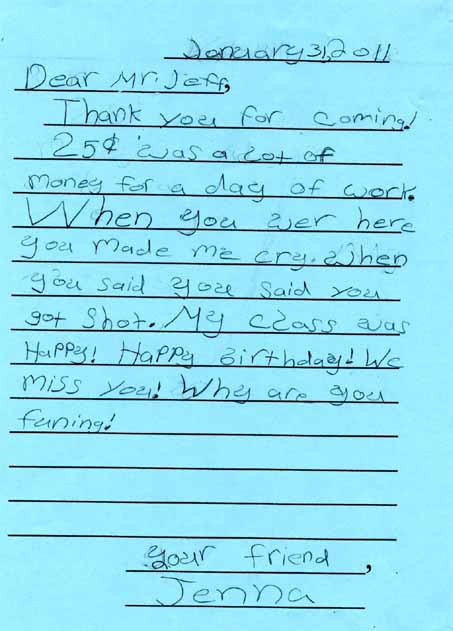 January 31, 2011
Dear Mr. Jeff,
Thank you for coming!
25¢ was a lot of
money for a day of work.
When you wer here
you made me cry. When
you said you said you
got shot. My class was
Happy! Happy Birthday! We
miss you! Why are you
funing!
your friend,
Jenna